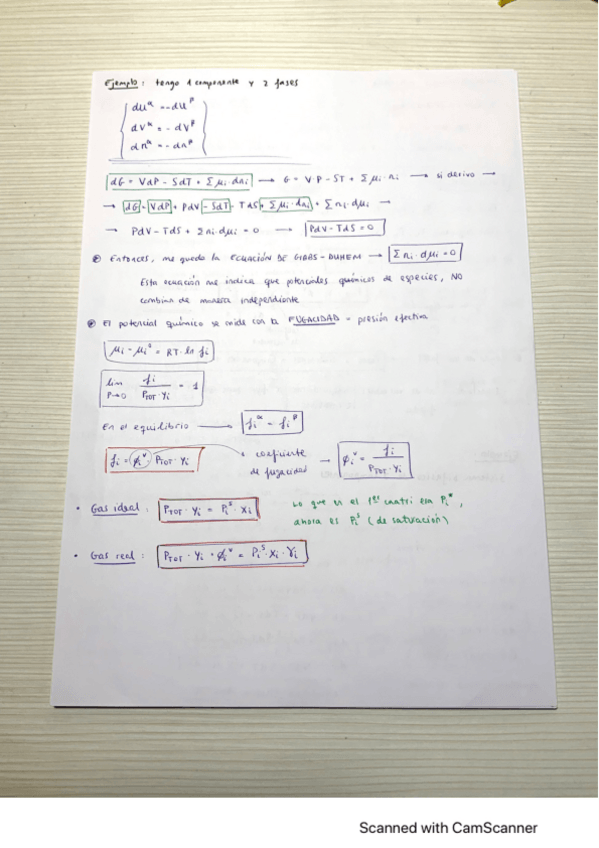 Ejemplo: tengo 1 componente y 2 fases
dU^α = -dU^β
dV^α = -dV^β
dn^α = -dn^β
dG = VdP - SdT + Σμi·dni → G = V·P - ST + Σμi·ni → si derivo →
→ dG = VdP + PdV - SdT - TdS + Σμi·dni + Σni·dμi →
→ PdV - TdS + Σni·dμi = 0 → PdV - TdS = 0
Entonces, me queda la ECUACIÓN DE GIBBS-DUHEM → Σni·dμi = 0
Esta ecuación me indica que potenciales químicos de especies, NO
cambian de manera independiente
El potencial químico se mide con la FUGACIDAD = presión efectiva
μi - μi° = RT·ln fi
lim P→0 fi / PTOT·yi = 1
En el equilibrio → fi^α = fi^β
fi = φi^v·PTOT·yi
coeficiente
de fugacidad → φi^v = fi / PTOT·yi
· Gas ideal: PTOT·yi = Pi^s·xi
Lo que en el 1er cuatri era Pi*,
ahora es Pi^s (de saturación)
· Gas real: PTOT·yi·φi^v = Pi^s·xi·γi
Scanned with CamScanner